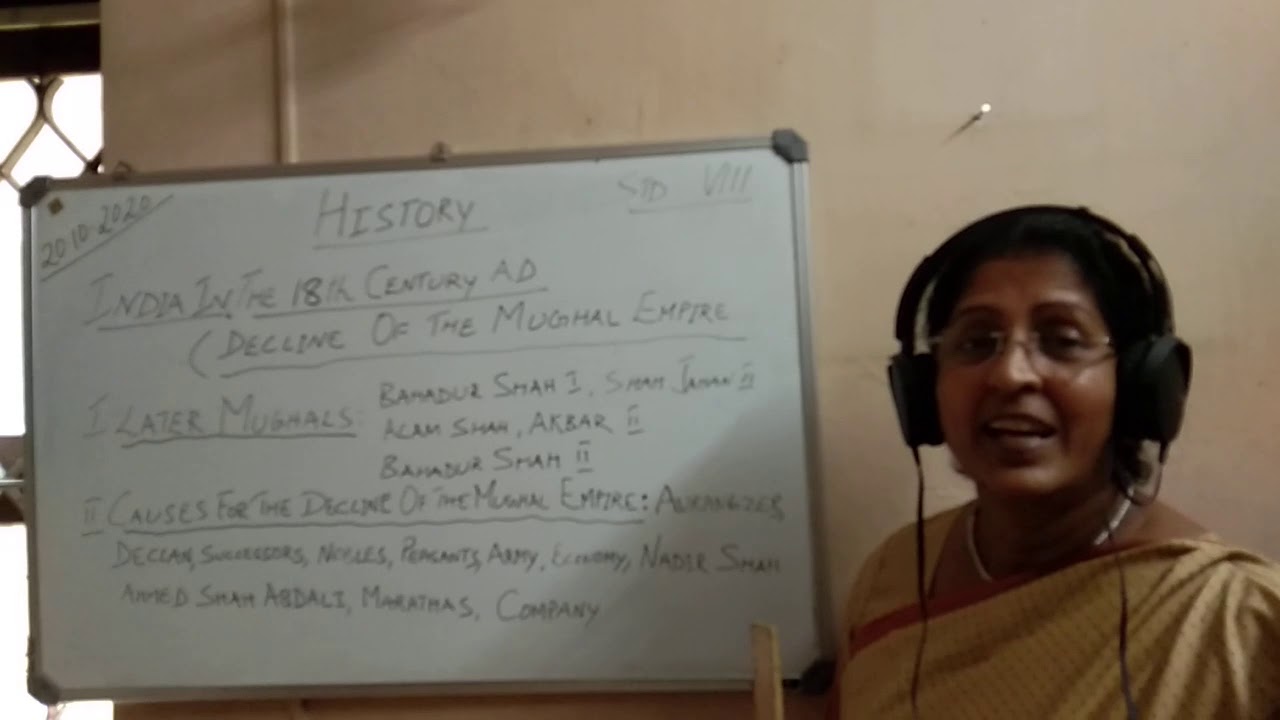 20-10-2020
HISTORY
STD VIII
INDIA IN THE 18th CENTURY AD
(DECLINE OF THE MUGHAL EMPIRE
I LATER MUGHALS: BAHADUR SHAH I, SHAH JAHAN II
ALAM SHAH, AKBAR II
BAHADUR SHAH II
II CAUSES FOR THE DECLINE OF THE MUGHAL EMPIRE: AURANGZEB,
DECCAN, SUCCESSORS, NOBLES, PEASANTS, ARMY, ECONOMY, NADIR SHAH
AHMED SHAH ABDALI, MARATHAS, COMPANY